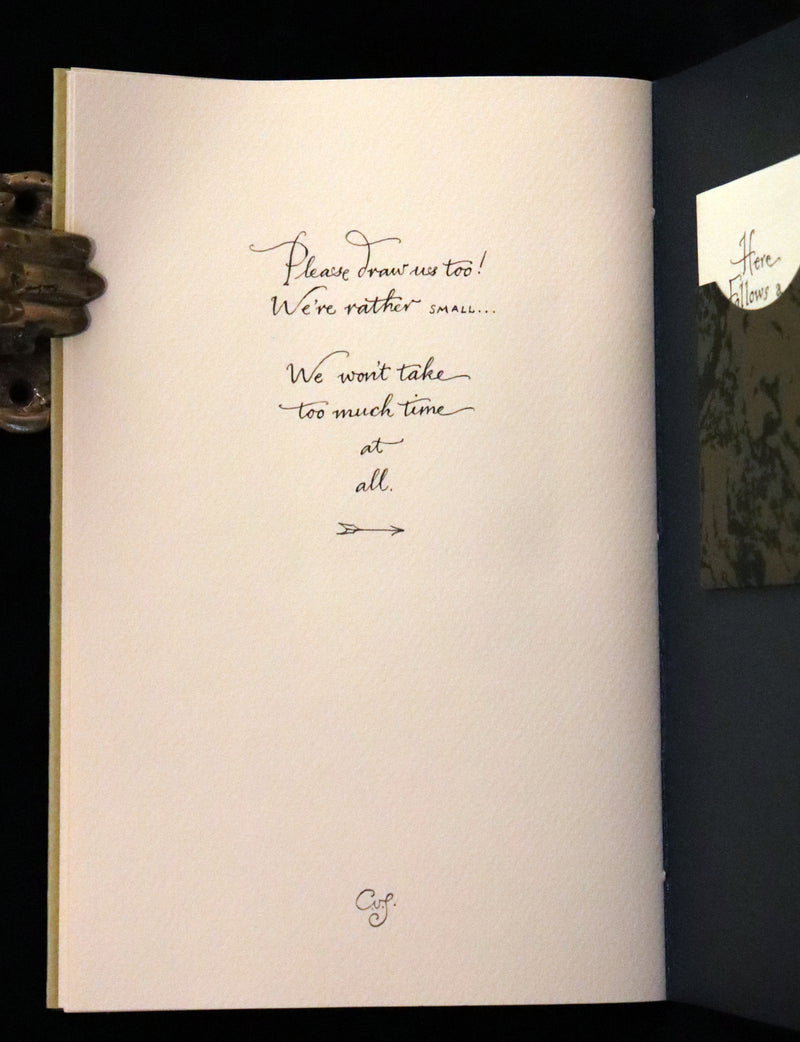 Please draw us too!
We're rather SMALL...
We won't take
too much time
at
all.
CvS.
Here
follows a